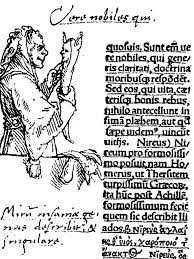 Vere nobiles qui.
quosuis. Sunt em̃ ue
te nobiles, qui ge
neris claritati, doctrina
moribusq; respõdẽt.
Sed eos, qui uita, cæ
terisq; bonis rebus,
nihilo antecellunt in
fimã plebem, aut
sæpe uidem', uincun
tur uitijs.
Nireus) Ni
reum pro formosissi
mo posuit, nam Ho
merus, ut Thersitem
turpissimũ Græcorũ,
ita huc post Achillẽ,
formosissimum fecit
quem sic describit Ili
ados, β Νιρεὺς
υἱὸς, χαρόποιό τ
ἄνακτ Νιρεὺς,
Mirũ
describit, &
singulare.